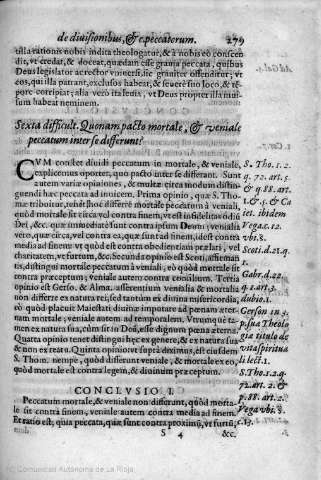 de diuisionibus, & c. peccatorum. 279
illa rationis nobis indita theologatur, & à nobis eò conscen
dit, vt credat, & doceat, quædam esse grauia peccata, quibus
Deus legislator ac rector vniuersi, sic grauiter offenditur; vt
eos, qui illa patrant, exclusos habeat, & seuerè suo loco, & tē
pore corripiat; alia verò ita leuia, vt Deus propter illa nul-
sum habeat neminem.
Sexta difficult. Quonam pacto mortale, & veniale
peccatum inter se differunt?
CVM constet diuidi peccatum in mortale, & veniale,
explicemus oportet, quo pacto inter se differant. Sunt
autem variæ opiniones, & multæ circa modum distin-
guendi hæc peccata ad inuicem. Prima opinio, quæ S. Tho-
mæ tribuitur, tenēs hoc differre mortale peccatum à veniali,
quòd mortale sit circa vel contra finem, vt est infidelitas odiū
Dei, &c. quæ immediatè sunt contra ipsum Deum; venialia
verò, quæ circa, vel contra ea, quæ sunt ad finem, idest contra
media ad finem vt quòd est contra obedientiam prælati, vel
charitatem, vt furtum, &c. Secunda opinio est Scoti, affirman
tis, distingui mortale peccatum à veniali, eò quòd mortale sit
contra præceptum; veniale autem contra consilium. Tertia
opinio est Gerso. & Alma. asserentium venialia & mortalia
non differre ex natura rei, sed tantùm ex diuina misericordia,
eò quòd placuit Maiestati diuinæ imputare ad pœnam æter-
nam mortale; veniale autem ad temporalem. Vtrunque ta-
men ex natura sua, cùm sit in Deū, esse dignum pœna æterna.
Quarta opinio tenet distingui hęc ex genere, & ex natura sua
& non ex reatu. Quinta opinio vt fit proximior, est eiusdem
S. Thom. nempè, quòd differunt veniale, & mortale ex eo,
quòd mortale est contra legem, & diuinum præceptum.
CONCLVSIO I.
Peccatum mortale, & veniale non differunt, quòd morta-
le sit contra finem, veniale autem contra media ad finem.
Et ratio est, quia peccata, quæ sunt contra proximū, vt furtū,
S 4 &c.
S. Tho. 1. 2.
q. 72. art. 5.
& q. 88. art.
1. & 5. & Ca
iet. ibidem
Vega c. 12.
vbi. 8.
Scoti. d. 21. q.
1.
Gabr. d. 22.
q. 1. art. 3.
dubio. 1.
Gerson in 3.
p. sua Theolo
gia titulo de
vita spiritua
li lect. 1.
S. Tho. 1. 2. q.
72. art. 2. &
q. 88. art. 2.
Vega vbi. 8.
c. 19.
Comunidad Autónoma de La Rioja